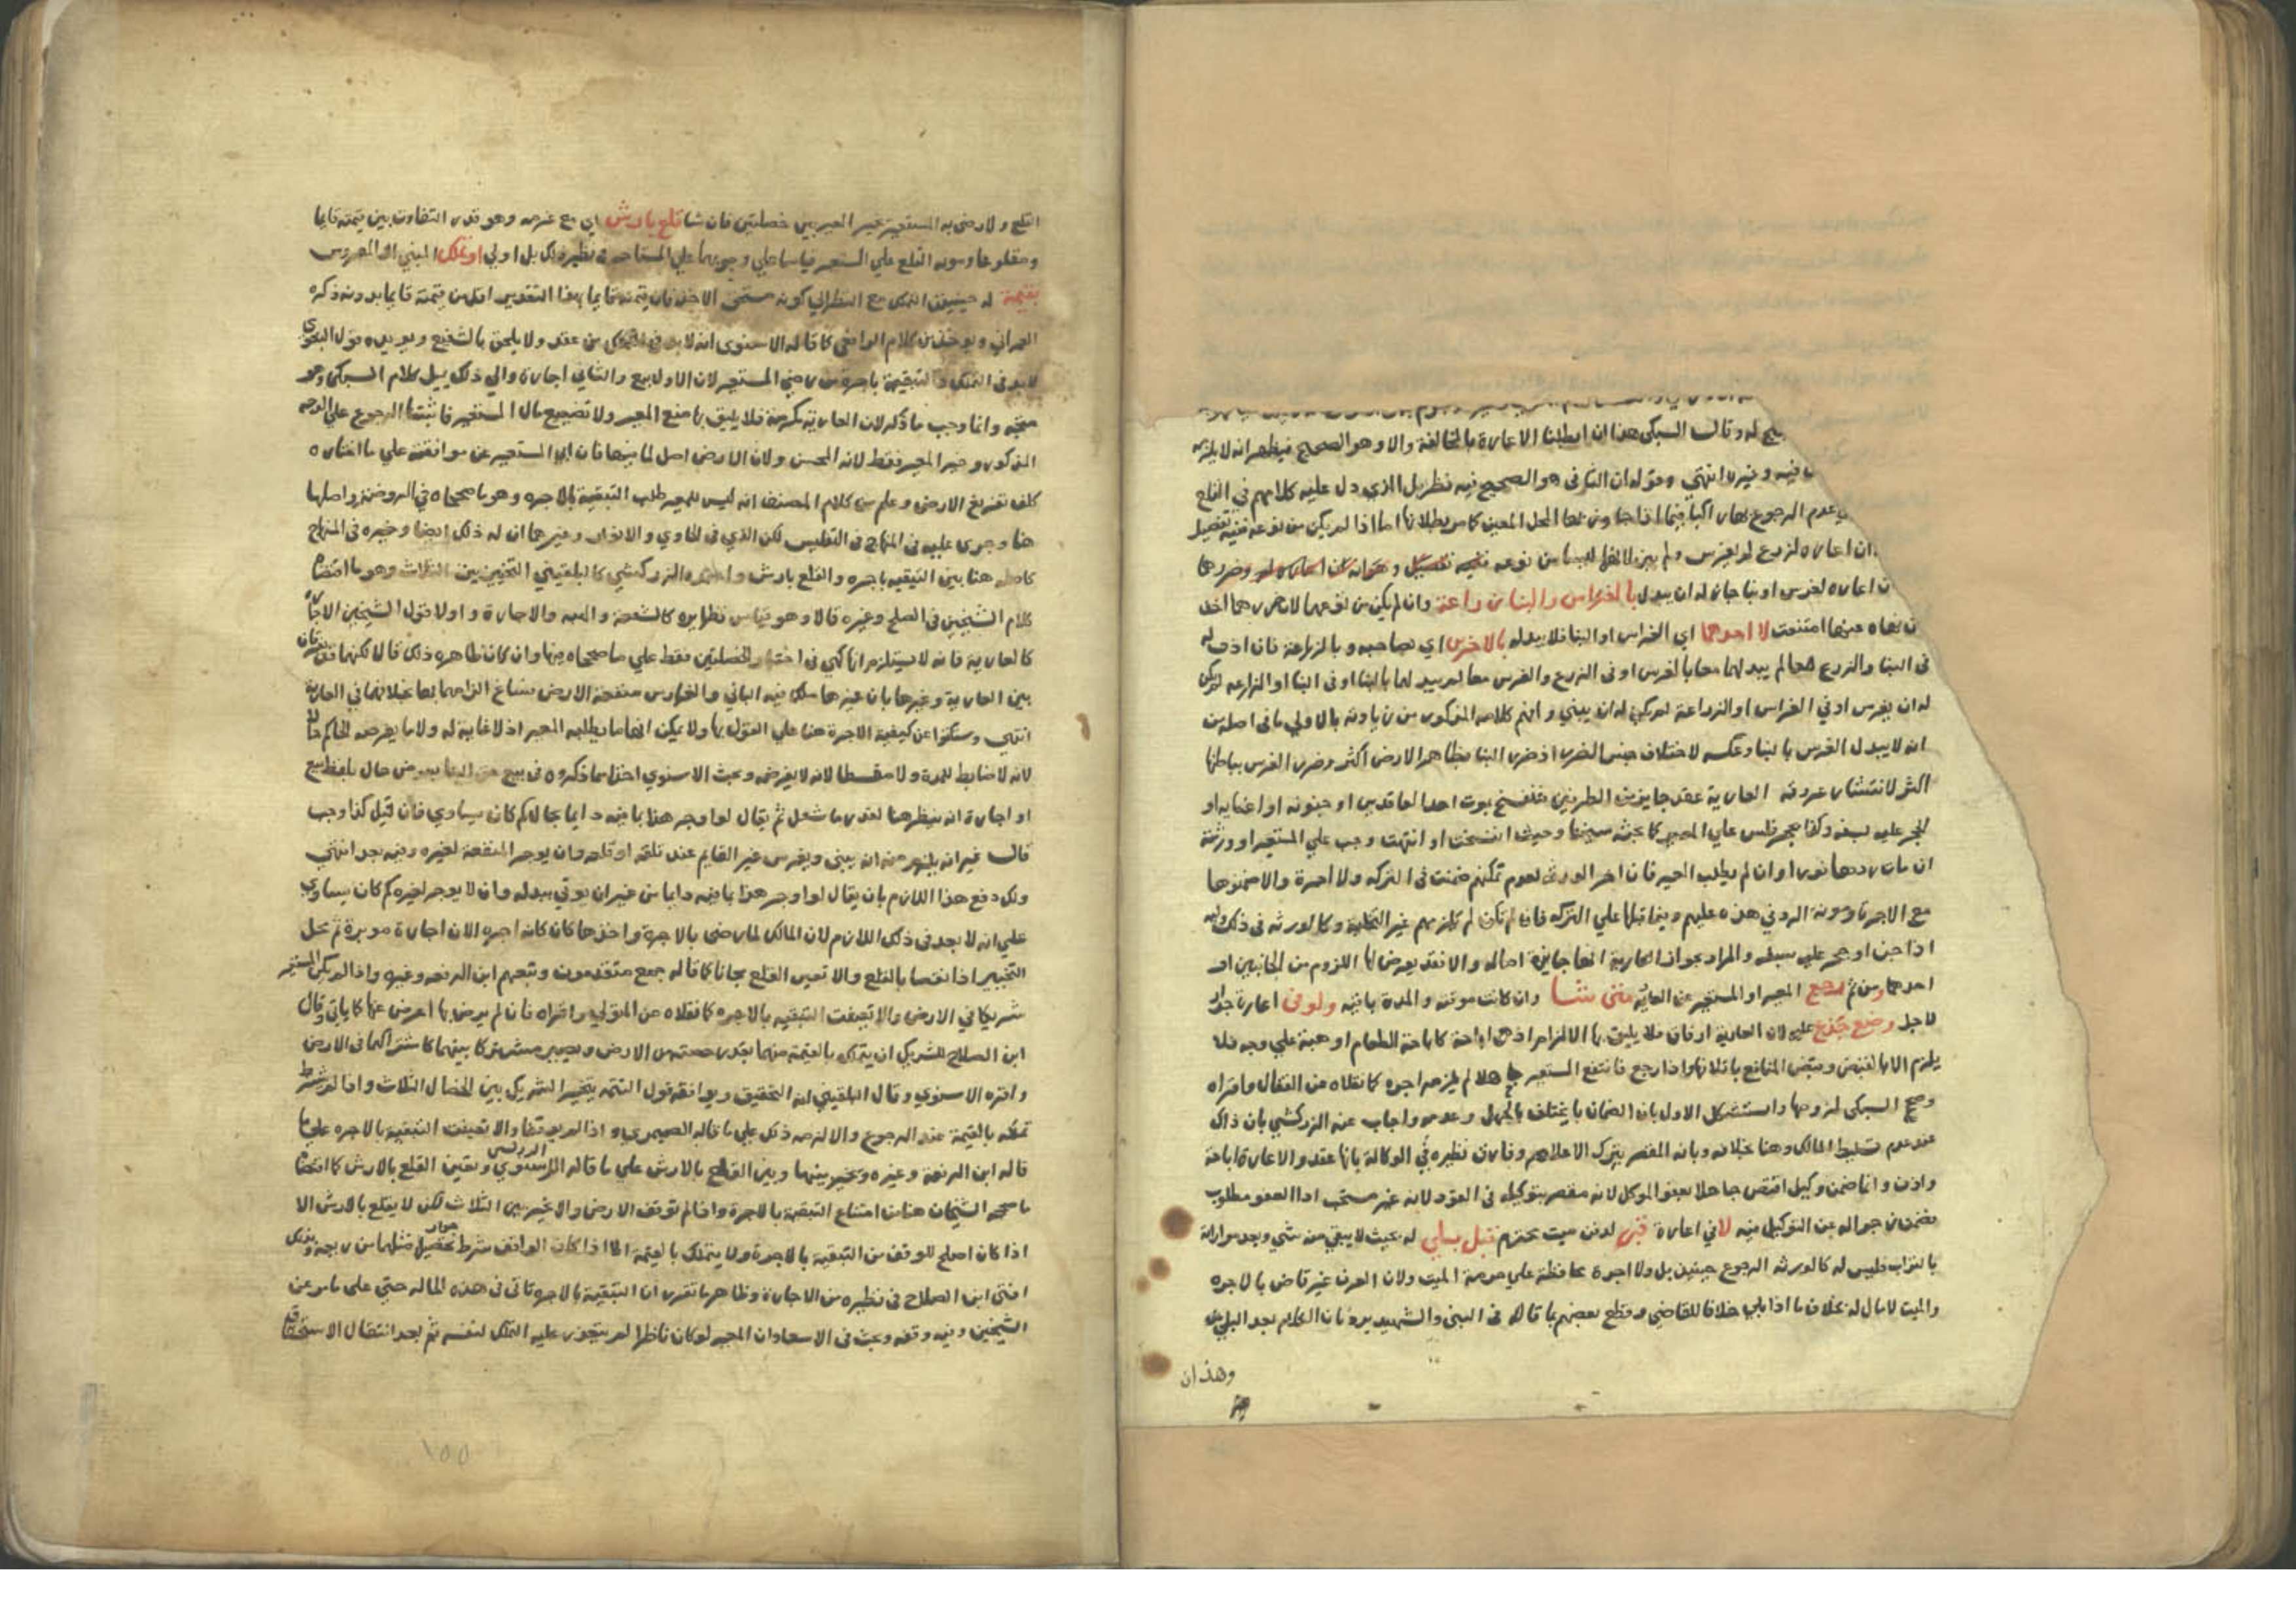 له وقال السبكي هذا ان ابطلنا الاعارة بالمخالفة والا وهو الصحيح فيظهر انه لا يلزمه
فيه وغيره انتهى وقوله ان الباقي هو الصحيح فيه نظر بل الذي دل عليه كلامهم في القلع
عدم الرجوع المحل المعين كما مر بطلانها اما اذا لم يكن من نوعه ففيه تفصيل
ان اعاره لزرع لم يغرس ولم يبن من نوعه
ن اعاره لغرس او بنا جاز له ان يبدل بالغراس والبنا زراعة وان لم يكن من نوعهما لان ضررها اخف
ن نهاه عنها امتنعت لا احدهما اي الغراس او البنا فلا يبدله بالاخر اي بصاحبه و بالزراعة فان اذن له
في البنا والزرع معا لم يبدلهما معا بالغرس او في الزرع والغرس معا لم يبدلهما بالبنا او في البنا او الزراعة لم يكن
له ان يغرس او في الغراس او الزراعة لم يكن له ان يبني وافهم كلامه المذكور من زيادته بالاولى ما في اصله من
انه لا يبدل الغرس بالبنا وعكسه لاختلاف جنس الضرر اذ ضرر البنا بظاهر الارض اكثر وضرر الغرس بباطنها
اكثر لانتشار عروقه العارية عقد جايز من الطرفين فتنفسخ بموت احد العاقدين او جنونه او اغمايه او
الحجر عليه بسفه وكذا بحجر فلس على المعير كما بحثه شيخنا وحيث انفسخت او انتهت وجب على المستعير او ورثته
ان مات ردها فورا وان لم يطلب المعير فان اخر الورثة لعدم تمكنهم ضمنت في التركة ولا اجرة والا ضمنوها
مع الاجرة ومونة الرد في هذه عليهم وفيما قبلها على التركة فان لم تكن لم يلزمهم غير التخلية وكالورثة في ذلك وليه
اذا جن او حجر عليه بسفه والمراد بجواز العارية انها جايزة اصالة والا فقد يعرض لها اللزوم من الجانبين او
احدهما ومن ثم رجع المعير او المستعير عن العارية متى شا وان كانت موقتة والمدة باقية ولو في اعارة جدار
لاجل وضع جذع عليه لان العارية ارفاق فلا يليق بها الالزام اذ هي اباحة كاباحة الطعام او هبة على وجه فلا
يلزم الا بالقبض وقبض المنافع باتلافها واذا رجع فانتفع المستعير جاهلا لم يلزمه اجرة كما نقلاه عن القفال واقراه
وصحح السبكي لزومها واستشكل الاول بان الضمان لا يختلف بالجهل وعدمه واجاب عنه الزركشي بان ذاك
عند عدم تسليط المالك وهنا بخلافه وبانه المقصر بترك الاعلام وفارق نظيره في الوكالة بانها عقد والاعارة اباحة
واذن وانما ضمن وكيل اقتص جاهلا بعفو الموكل لانه مقصر بتوكيله في القود لانه غير مستحب اذ العفو مطلوب
فضمن زجرا له عن التوكيل فيه لا في اعارة قبر لدفن ميت محترم قبل بلى له بحيث لا يبقى منه شي وبعد مواراته
بالتراب فليس له كالورثة الرجوع حينئذ بل ولا اجرة محافظة على حرمة الميت ولان العرف غير قاض بالاجرة
والميت لا مال له بخلاف ما اذا بلي خلافا للقاضي وقطع بعضهم بما قاله في النبي والشهيد يرد بان الكلام بعد البلي
وهذان
القلع ولا رضي به المستعير تخير المعير بين خصلتين فان شا قلع بارش اي مع غرمه وهو قدر التفاوت بين قيمته قايما
ومقلوعا ومونة القلع على المستعير قياسا على وجوبها على المستاجر في نظير ذلك بل اولى او تملك المبني او المغروس
بقيمة له حينئذ التملك مع النظر الي كونه مستحق الاخذ فان قيمته قايما بهذا التقدير اقل من قيمته قايما بدونه ذكره
العمراني ويوخذ من كلام الرافعي كما قاله الاسنوي انه لا بد في التملك من عقد ولا يلحق بالشفيع ويويده قول البغوي
لا بد في التملك والتبقية باجرة من رضي المستعير لان الاول بيع والثاني اجارة والي ذلك يميل كلام السبكي وهو
متجه وانما وجب ما ذكر لان العارية مكرمة فلا يليق بها منع المعير ولا تضييع مال المستعير فاثبتنا الرجوع على الوجه
المذكور وخير المعير فقط لانه المحسن ولان الارض اصل لما فيها فان ابي المستعير عن موافقته علي ما اختاره
كلف تفريغ الارض وعلم من كلام المصنف انه ليس للمعير طلب التبقية بالاجرة وهو ما صححاه في الروضة واصلها
هنا وجرى عليه في المنهاج في التفليس لكن الذي في الحاوي والانوار وغيرها ان له ذلك ايضا وخيره في المنهاج
كاصله هنا بين التبقيه باجره والقلع بارش واعتمد الزركشي كالبلقيني التخيير بين الثلاث وهو ما اقتضاه
كلام الشيخين في الصلح وغيره قالا وهو قياس نظايره كالشفعة والهبه والاجارة واولا قول الشيخين الاجارة
كالعارية فانه لا يستلزم انها كهي في اختيار الخصلتين فقط علي ما صححاه فيها وان كان ظاهره ذلك قالا لكنهما قد يفرقان
بين العارية وغيرها بان غيرها ملك فيه الباني والغارس منفعة الارض فساغ الزامهما بها بخلافهما في العارية
انتهى وسكتوا عن كيفية الاجرة هنا على القول بها ولا يمكن انها ما يطلبه المعير اذ لا غاية له ولا ما يفرضه الحاكم حالا
لانه لا ضابط للمدة ولا مقسطا لانه لا يفرضه وبحث الاسنوي اخذا مما ذكروه في بيع حق البنا بعوض حال بلفظ بيع
او اجارة انه ينظر هنا لقدر ما شغل ثم يقال لو اوجر هذا بما فيه دايما بحال كم كان يساوي فان قيل كذا وجب
قال غير انه يلزم منه انه يبني ويغرس غير القايم عند تلفه او قلعه وان يوجر المنفعة لغيره وفيه بعد انتهي
ولك دفع هذا اللازم بان يقال لو اوجر هذا بما فيه دايما من غير ان يوتي ببدله وان لا يوجر لغيره كم كان يساوي
علي انه لا بعد في ذلك اللازم لان المالك لما رضي بالاجرة واخذها كان كانه اجره الان اجارة موبدة ثم محل
التخيير اذا نقصا بالقلع والا تعين القلع مجانا كما قاله جمع متقدمون وتبعهم ابن الرفعه وغيره واذا لم يكن المستعير
شريكا في الارض والا تعينت التبقيه بالاجره كما نقلاه عن المتولي واقراه فان لم يرض بها اعرض عنها كما ياتي وقال
ابن الصلاح للشريك ان يتملك بالقيمة منهما بقدر حصته من الارض ويصير مشتركا بينهما كاشتراكهما في الارض
واقره الاسنوي وقال البلقيني انه التحقيق ويوافقه قول التتمه يتخير الشريك بين الخصال الثلاث واذا لم يشترط
تملكه بالقيمة عند الرجوع والا لزمه ذلك علي ما قاله الصيمري واذا لم يوقفا والا تعينت التبقية بالاجره علي ما
قاله ابن الرفعة وغيره وتخير بينها وبين القلع بالارش علي ما قاله الاسنوي وتعين القلع بالارش كما اقتضاه
ما صححه الشيخان هنا من امتناع التبقية بالاجرة واذا لم توقف الارض والا تخير بين الثلاث لكن لا يقلع بالارش الا
اذا كان اصلح للوقف من التبقية بالاجرة ولا يتملك بالقيمة الا اذا كان الواقف شرط جواز تحصيل مثلها من ريعه وبذلك
افتى ابن الصلاح في نظيره من الاجارة وظاهر ما تقرر ان التبقية بالاجرة تاتي في هذه الحاله حتي على ما مر عن
الشيخين وفيه وقفه وبحث في الاسعاد ان المعير لو كان ناظرا لم يتجوز عليه التملك لنفسه ثم بعد انتقال الاستحقاق
١٥٥